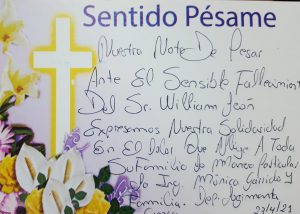 Sentido Pésame
Nuestra Nota De Pesar
Ante El Sensible Fallecimiento
Del Sr. William Jeon
Expresamos Nuestra Solidaridad
En El Dolor Que Aflige A Toda
Su Familia y
Ing. Mónica Garrido y
Familia. Dep.
23/4/21